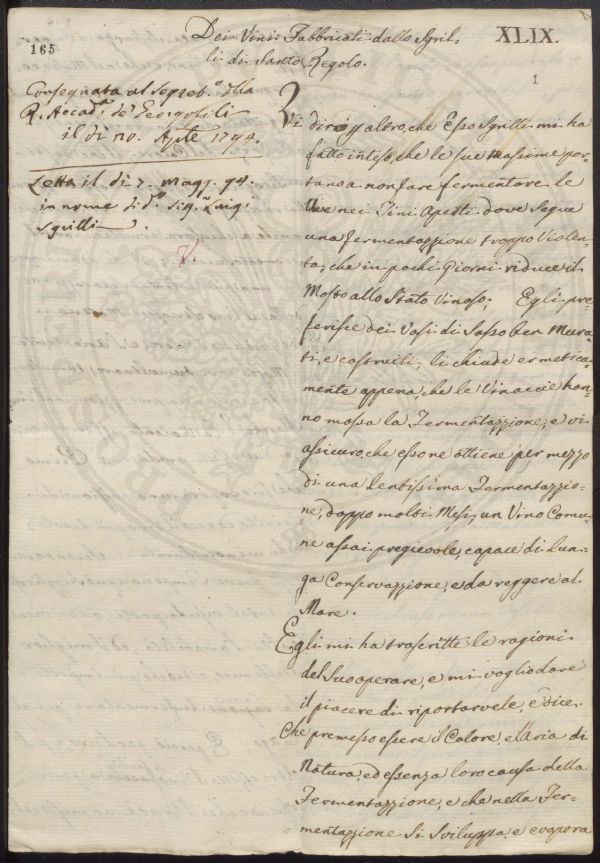 165
XLIX.
1
Dei Vini Fabbricati dallo Sgril-
li di Santo Regolo.
Consegnata al Segret.o della
R. Accad.a de' Georgofili
il dì 10. Aple 1794.
Letta il di 7. Magg. 94.
in nome di d.o Sig.r Luigi
Sgrilli.
V.
Vi dirò p altro, che Esso Sgrilli mi ha
fatto inteso, che le sue Massime por-
tano a non fare fermentare le
Uve nei Tini Aperti dove segue
una fermentazzione troppo Violen-
ta, che in pochi Giorni riduce il
Mosto allo Stato Vinoso; Egli pre-
ferisce dei Vasi di Sasso ben Mura-
ti, e costruiti, li chiude ermetica-
mente appena, che le Vinaccie han-
no mossa la Fermentazzione, e vi
assicuro, che esso ne ottiene per mezzo
di una lentissima Fermentazzio-
ne, doppo molti Mesi, un Vino Comu-
ne assai pregievole, capace di Lun-
ga Conservazzione, e da reggere al
Mare.
Egli mi ha trascritte le ragioni
del Suo operare, e mi voglio dare
il piacere di riportarvele, e dice.
Che premesso essere il Calore, e l'aria di
" Natura, ed essenza loro causa della
" Fermentazzione, e che nella Fer-
" mentazzione si sviluppa, e evapora